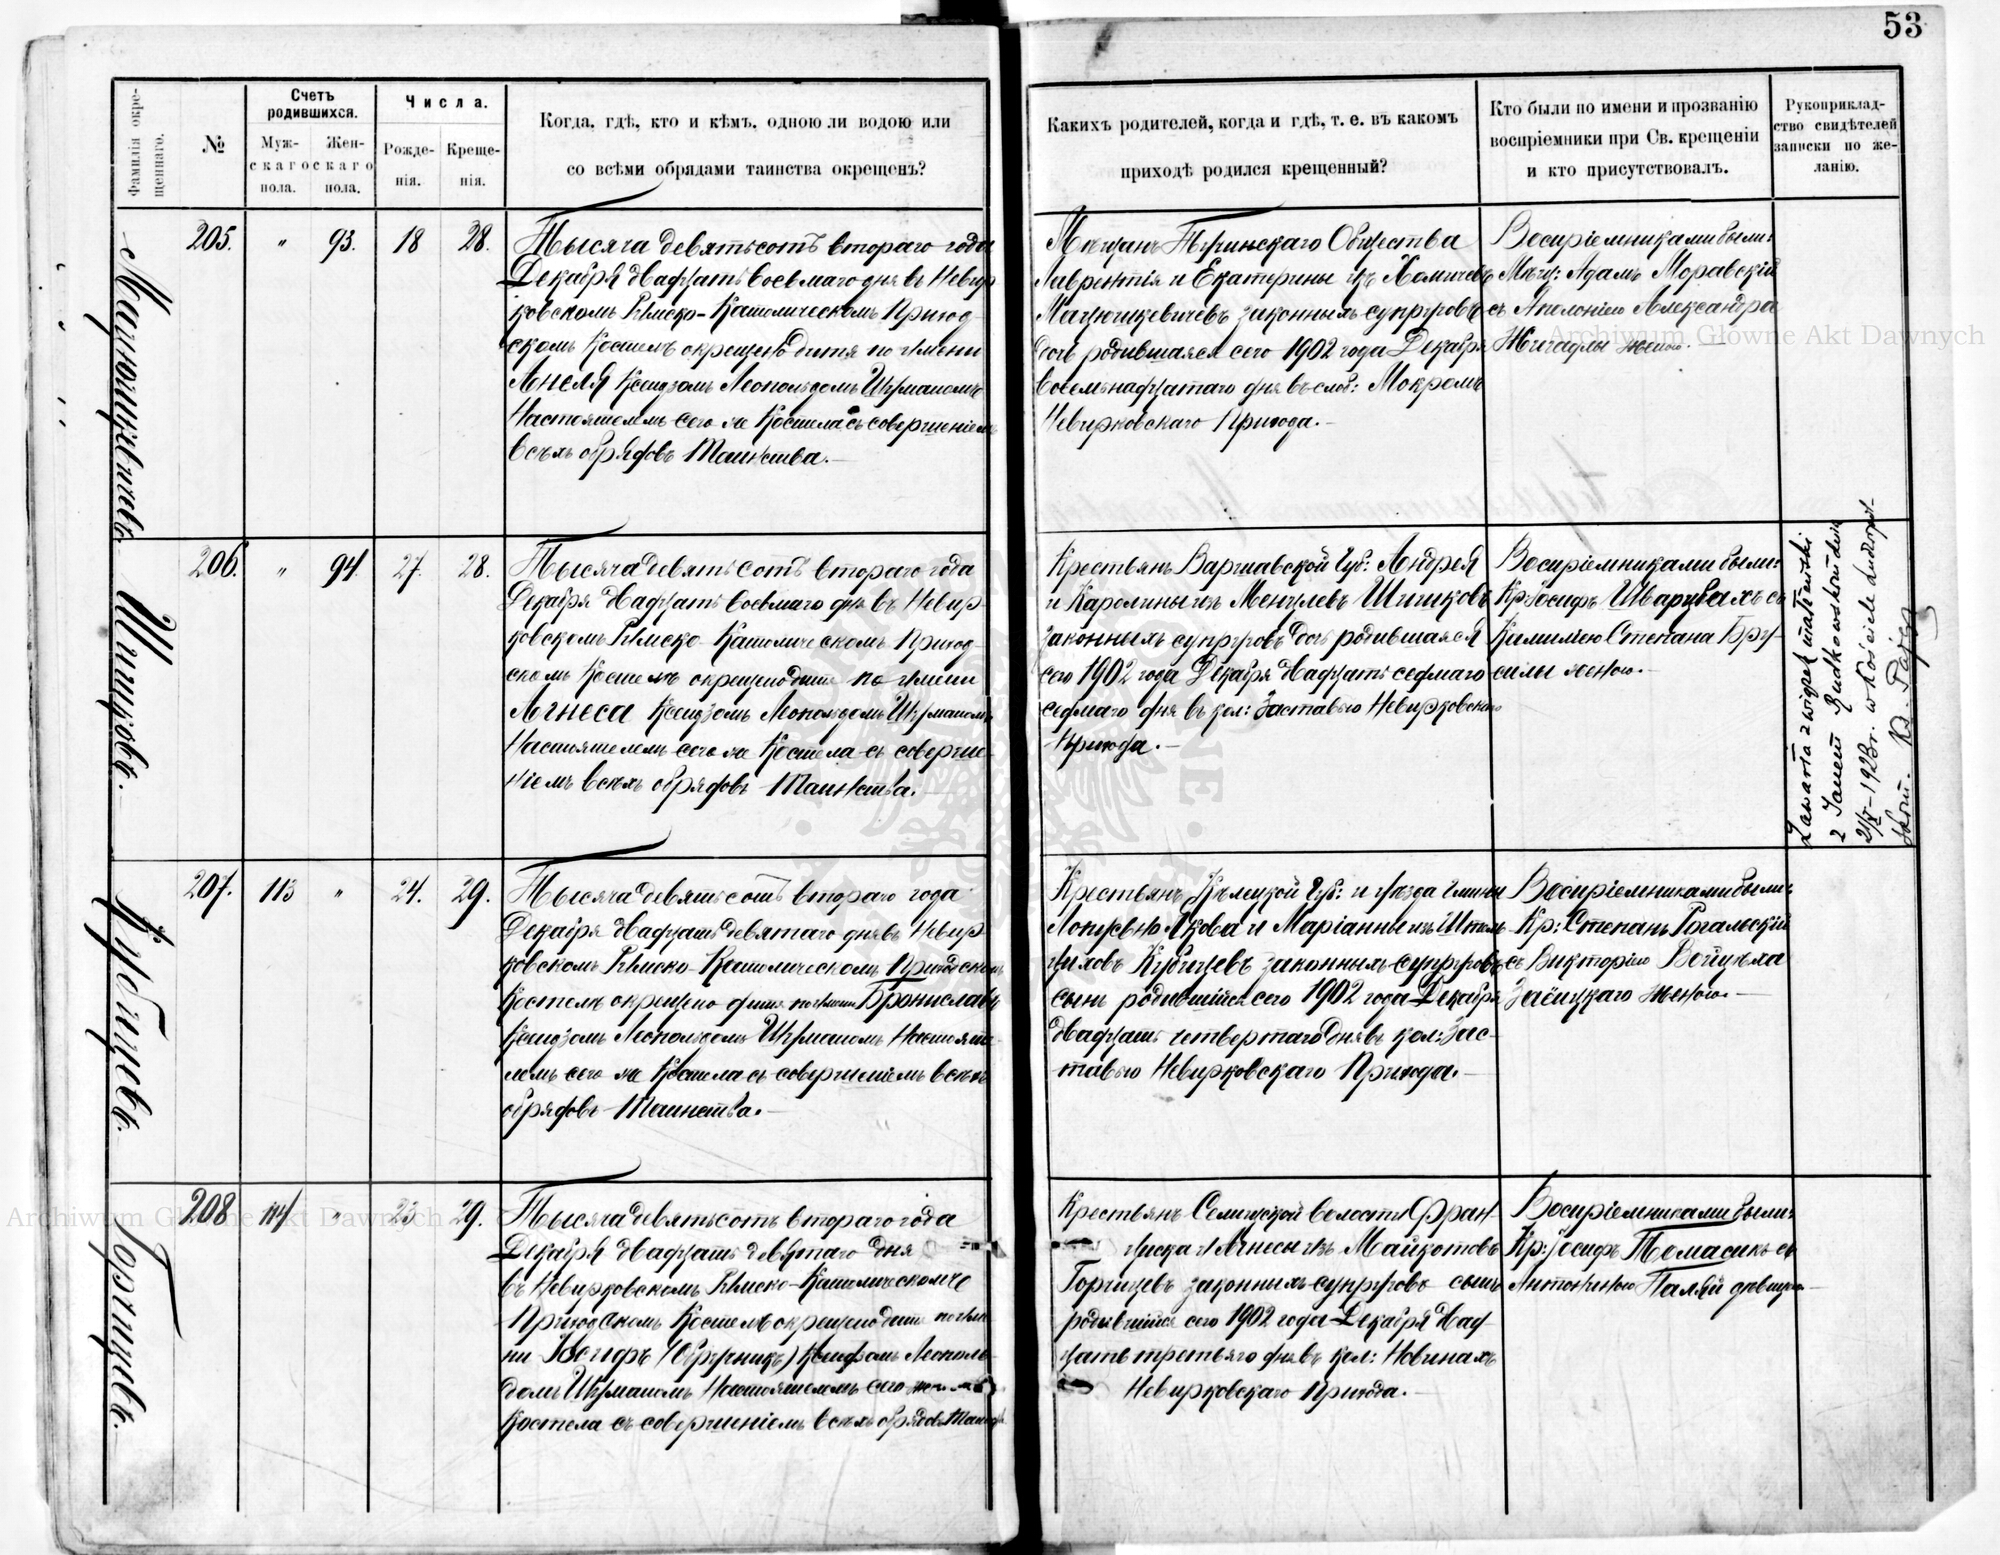 53
Фамилія окре-
щеннаго.
№
Счетъ
родившихся.
Муж-
скаго
пола.
Жен-
скаго
пола.
Числа.
Рожде-
нія.
Креще-
нія.
Когда, гдѣ, кто и кѣмъ, одною ли водою или
со всѣми обрядами таинства окрещенъ?
Какихъ родителей, когда и гдѣ, т. е. въ какомъ
приходѣ родился крещенный?
Кто были по имени и прозванію
воспріемники при Св. крещеніи
и кто присутствовалъ.
Рукоприклад-
ство свидѣтелей
записки по же-
ланію.
Мацюшкевичевъ.
205. " 93. 18 28.
Тысяча девятьсотъ втораго года
Декабря двадцать восьмаго дня въ Невир-
ковскомъ Римско-Католическомъ Приход-
скомъ Костелѣ окрещено дитя по имени
Анеля Ксендзомъ Леопольдомъ Шуманомъ
Настоятелемъ сего же Костела съ совершеніемъ
всѣхъ обрядовъ Таинства.—
Мѣщанъ Общества
Лаврентія и Екатерины изъ Хомичевъ
Мацюшкевичевъ законныхъ супруговъ
дочь родившаяся сего 1902 года Декабря
восемьнадцатаго дня въ слоб: Мокромъ
Невирковскаго Прихода.—
Воспріемниками были:
Мѣщ: Адамъ Моравскій
съ Аполоніею Александра
женою.—
Шицковъ.
206. " 94. 27. 28.
Тысяча девятьсотъ втораго года
Декабря двадцать восьмаго дня въ Невир-
ковскомъ Римско-Католическомъ Приход-
скомъ Костелѣ окрещено дитя по имени
Агнеса Ксендзомъ Леопольдомъ Шуманомъ
Настоятелемъ сего же Костела съ соверше-
ніемъ всѣхъ обрядовъ Таинства.—
Крестьянъ Варшавской Губ: Андрея
и Каролины изъ Шицковъ
законныхъ супруговъ дочь родившаяся
сего 1902 года Декабря двадцать седмаго
седмаго дня въ кол: Заставью Невирковскаго
Прихода.—
Воспріемниками были:
Кр: Іосифъ съ
Степана
женою.—
Zawarła związek małżeński
z Janem Rudkowskim dnia
1923 r. w kościele
Кубицевъ.
207. 113 " 24. 29.
Тысяча девятьсотъ втораго года
Декабря двадцать девятаго дня въ Невир-
ковскомъ Римско-Католическомъ Приходскомъ
Костелѣ окрещено дитя по имени Брониславъ
Ксендзомъ Леопольдомъ Шуманомъ Настояте-
лемъ сего же Костела съ совершеніемъ всѣхъ
обрядовъ Таинства.—
Крестьянъ Кѣлецкой Губ: и уѣзда Гмины
Лопушно Якова и Маріанны изъ
Кубицевъ законныхъ супруговъ
сынъ родившійся сего 1902 года Декабря
двадцать четвертаго дня въ кол: Зас-
тавью Невирковскаго Прихода.—
Воспріемниками были:
Кр: Степанъ Рогальскій
съ Викторіею Войцѣха
Заёнцкаго женою.—
Горицевъ.
208 114 " 23 29.
Тысяча девятьсотъ втораго года
Декабря двадцать девятаго дня
въ Невирковскомъ Римско-Католическомъ
Приходскомъ Костелѣ окрещено дитя по име-
ни Іосифъ Ксендзомъ Леополь-
домъ Шуманомъ Настоятелемъ сего же
Костела съ совершеніемъ всѣхъ обрядовъ Таинства
Крестьянъ волости Фран-
циска и Агнесы изъ Майкотовъ
Горицевъ законныхъ супруговъ сынъ
родившійся сего 1902 года Декабря двад-
цать третьяго дня въ кол: Новинахъ
Невирковскаго Прихода.—
Воспріемниками были:
Кр: Іосифъ Томасикъ съ
Антониною девицею—
Archiwum Główne Akt Dawnych
Archiwum Główne Akt Dawnych